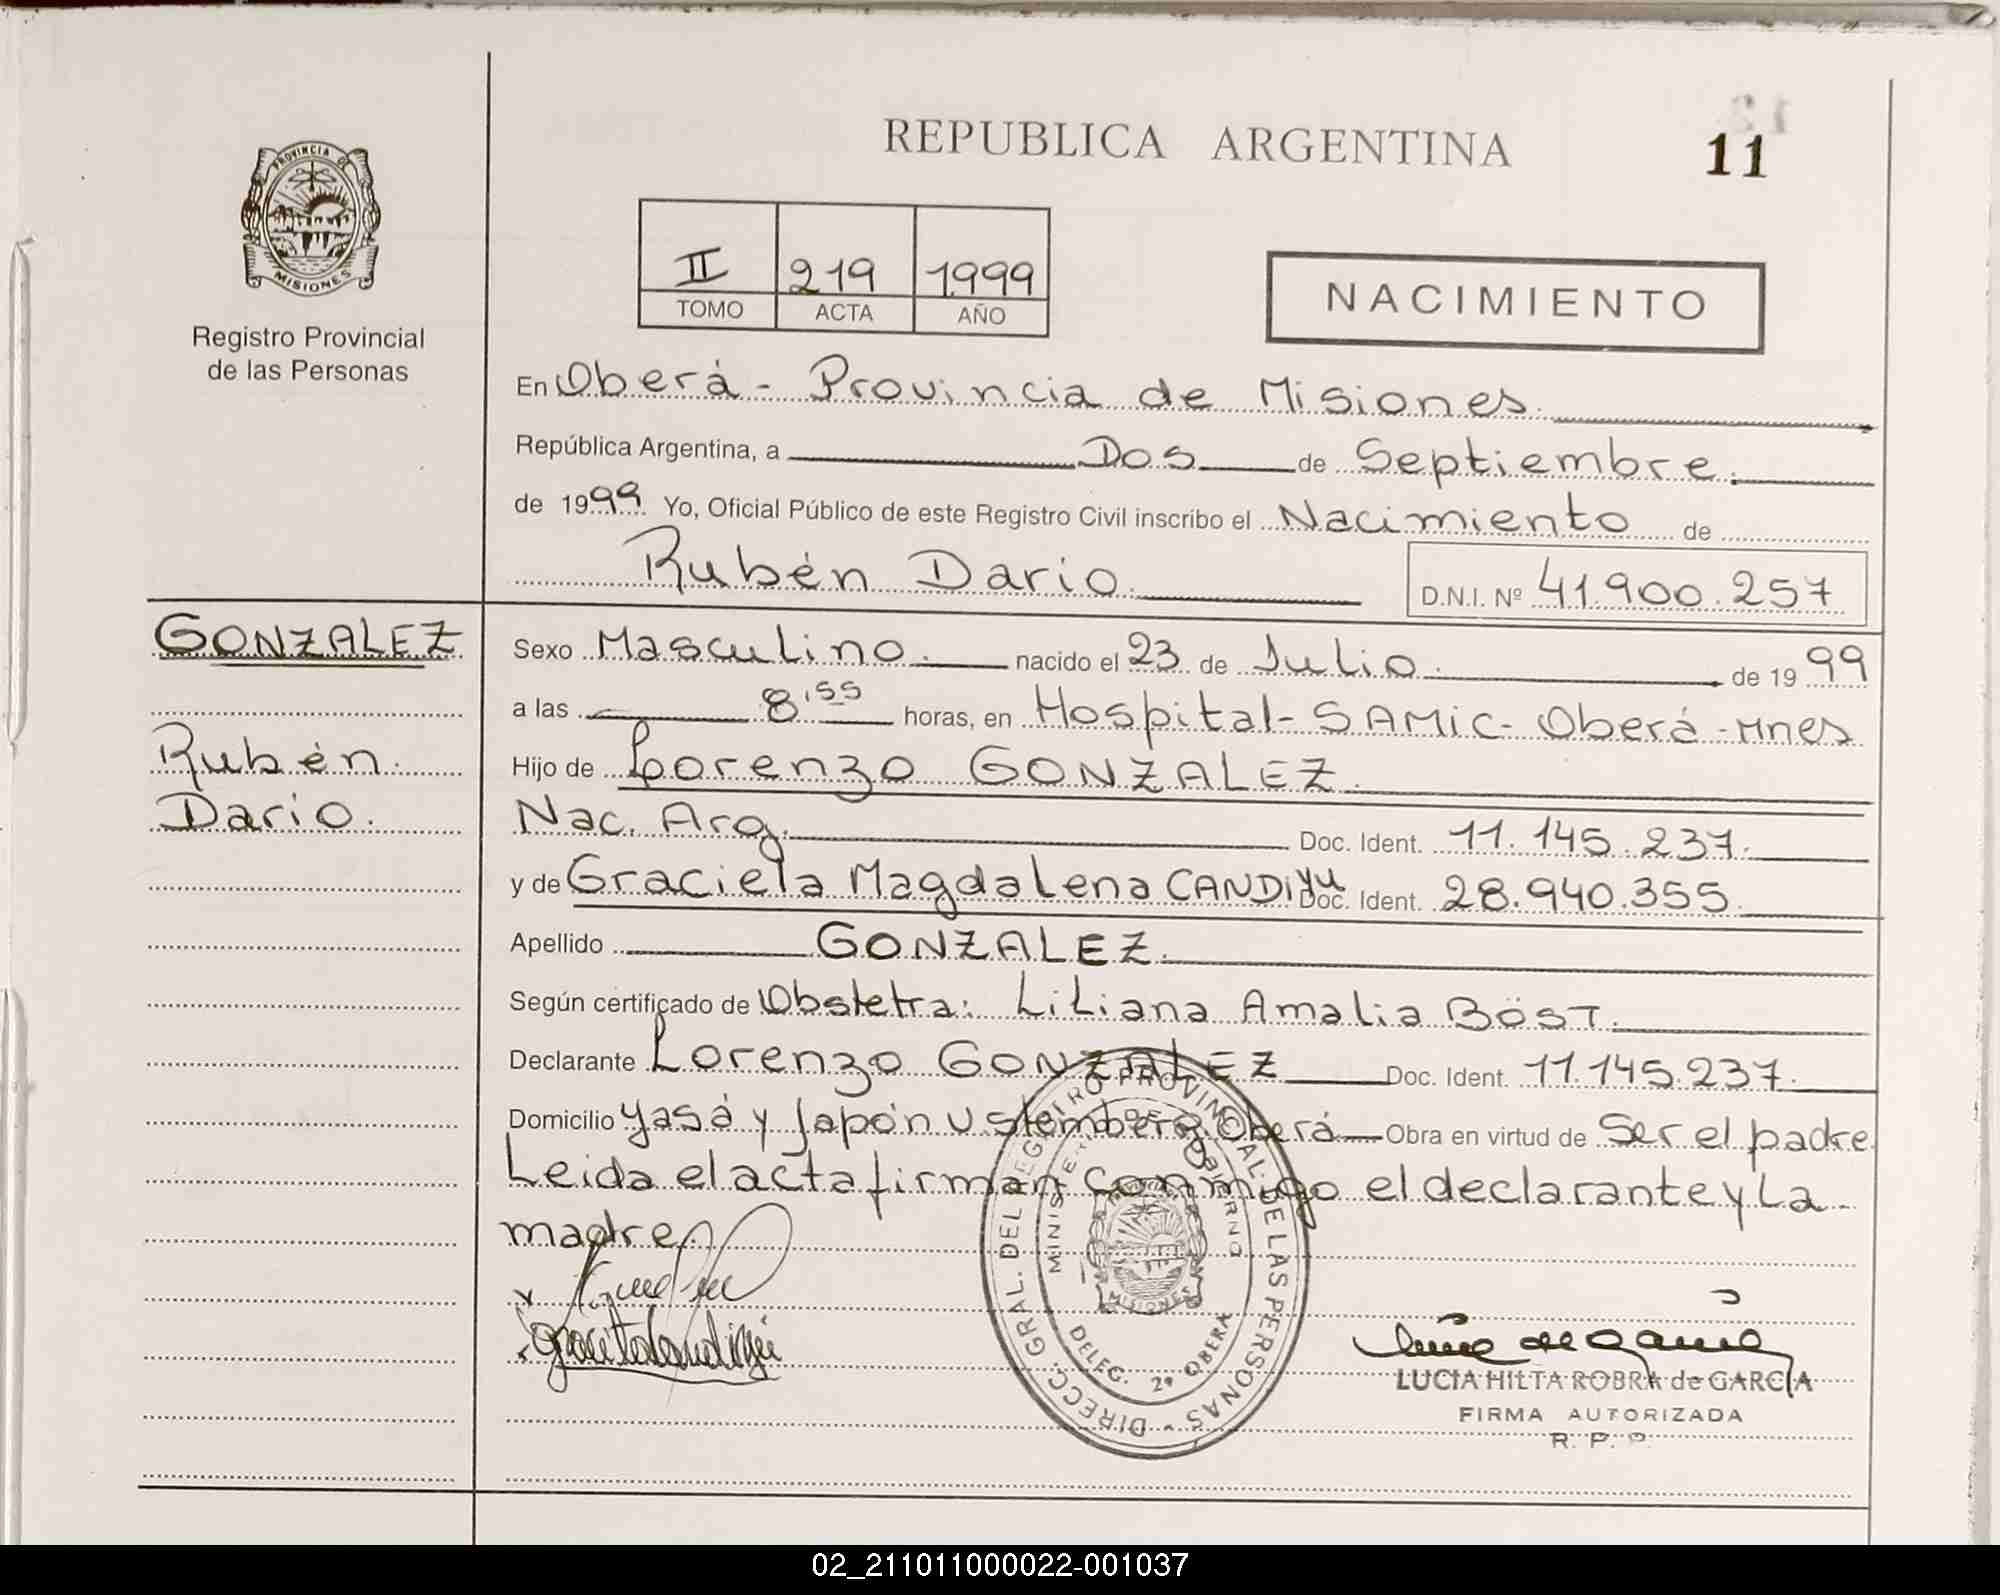 REPUBLICA ARGENTINA
11
PROVINCIA DE
MISIONES
Registro Provincial
de las Personas
II 219 1999
TOMO ACTA AÑO
NACIMIENTO
En Oberá - Provincia de Misiones
República Argentina, a Dos de Septiembre
de 1999 Yo, Oficial Público de este Registro Civil inscribo el Nacimiento de
Rubén Dario. D.N.I. Nº 41.900.257
GONZALEZ
Rubén
Dario.
Sexo Masculino. nacido el 23 de Julio. de 1999
a las 8'55 horas, en Hospital - SAMIC - Oberá - Mnes
Hijo de Lorenzo GONZALEZ.
Nac. Arg. Doc. Ident. 11.145.237.
y de Graciela Magdalena CANDIYU Doc. Ident. 28.940.355
Apellido GONZALEZ.
Según certificado de Obstetra: Liliana Amalia BÖST.
Declarante Lorenzo GONZALEZ Doc. Ident. 11.145.237.
Domicilio Yasá y Japón Oberá Obra en virtud de Ser el padre
Leida el acta firman conmigo el declarante y La
madre.
DIRECC. GRAL. DEL REGISTRO PROVINCIAL DE LAS PERSONAS
MINISTERIO DE GOBIERNO
MISIONES
DELEG. 2ª OBERA
LUCIA HILTA ROBRA de GARCIA
FIRMA AUTORIZADA
R. P. P.
02_211011000022-001037